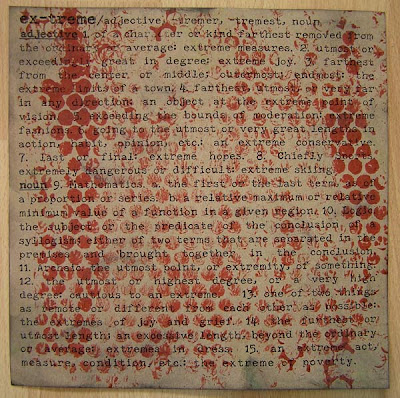 ex-treme/adjective, -tremer, -tremest, noun
adjective 1. of a character or kind farthest removed from
the ordinary or average: extreme measures. 2. utmost or
exceedingly great in degree: extreme joy. 3. farthest
from the center or middle; outermost; endmost: the
extreme limits of a town. 4. farthest, utmost, or very far
in any direction: an object at the extreme point of
vision. 5. exceeding the bounds of moderation: extreme
fashions. 6. going to the utmost or very great lengths in
action, habit, opinion, etc.: an extreme conservative.
7. last or final: extreme hopes. 8. Chiefly Sports.
extremely dangerous or difficult: extreme skiing.
noun 9. Mathematics. the first or the last term, as of
a proportion or series. b. a relative maximum or relative
minimum value of a function in a given region. 10. Logic.
the subject or the predicate of the conclusion of a
syllogism; either of two terms that are separated in the
premises and brought together in the conclusion.
11. Archaic. the utmost point, or extremity, of something.
12. the utmost or highest degree, or a very high
degree: cautious to an extreme. 13. one of two things
as remote or different from each other as possible:
the extremes of joy and grief. 14. the furthest or
utmost length; an excessive length, beyond the ordinary
or average: extremes in dress. 15. an extreme act,
measure, condition, etc.: the extreme of poverty.